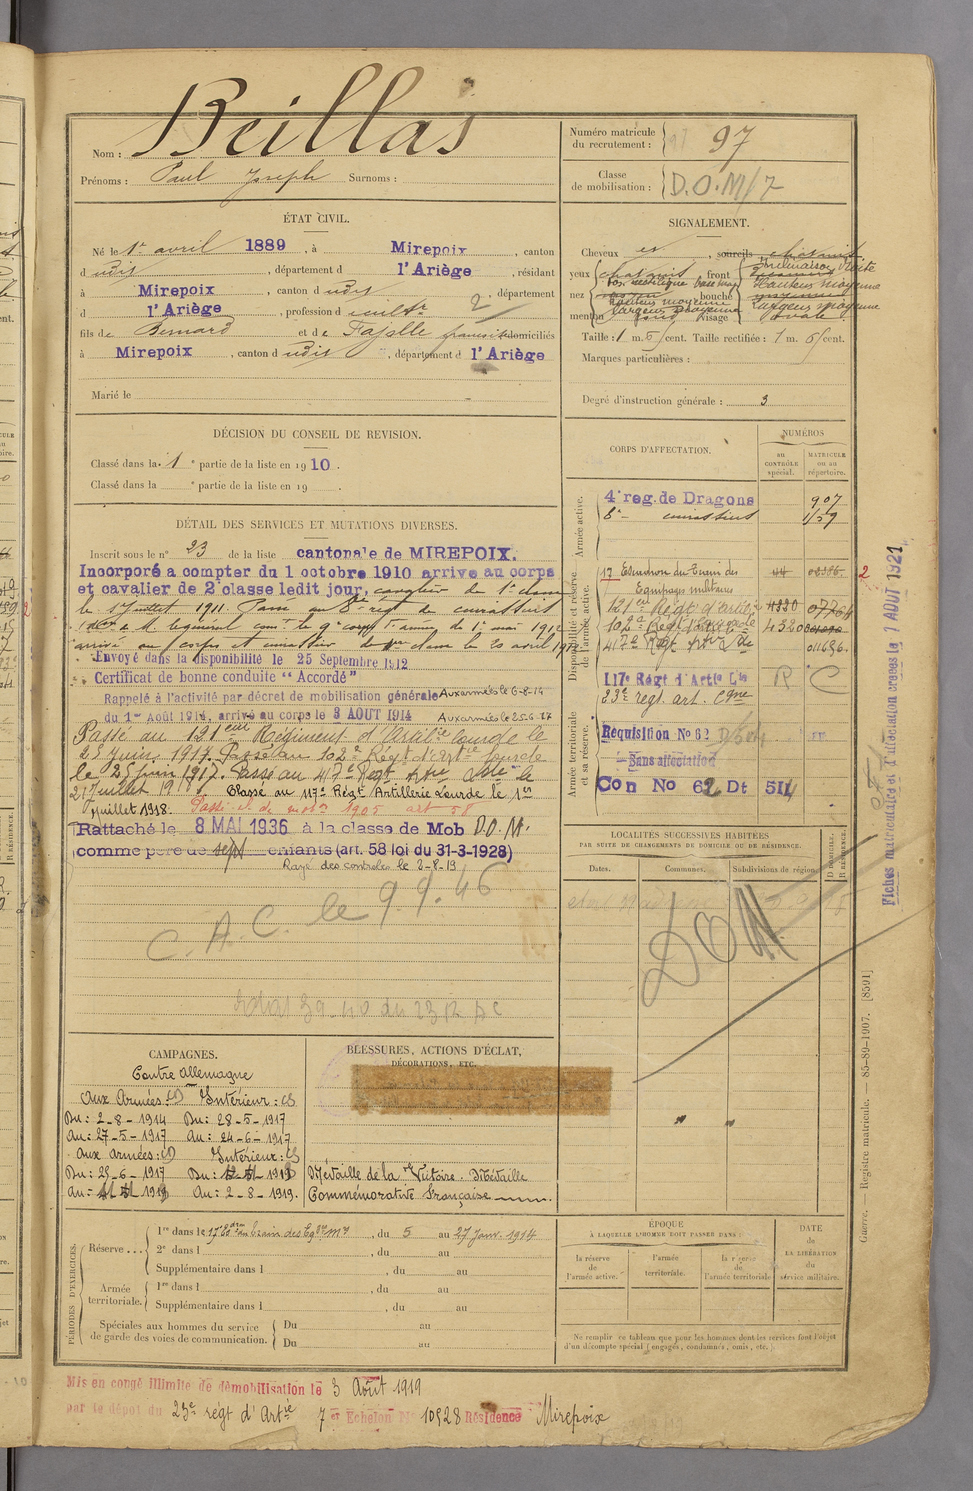 Nom : Beillas
Prénoms : Paul Joseph Surnoms :
Numéro matricule du recrutement : 97
Classe de mobilisation : D.O.M/7
ÉTAT CIVIL.
Né le 1er avril 1889, à Mirepoix, canton
dudit, département d l'Ariège, résidant
à Mirepoix, canton dudit, département
d l'Ariège, profession d cultr 2
fils de Bernard et de domiciliés
à Mirepoix, canton dudit, département d l'Ariège
Marié le
SIGNALEMENT.
Cheveux sourcils châtains
yeux châtains front Inclinaison Droite
Hauteur moyenne
nez bouche Largeur moyenne
menton rond visage ovale
Taille : 1 m. 65 cent. Taille rectifiée : 1 m. 65 cent.
Marques particulières :
Degré d'instruction générale : 3
DÉCISION DU CONSEIL DE REVISION.
Classé dans la 1e partie de la liste en 1910.
Classé dans la e partie de la liste en 19 .
DÉTAIL DES SERVICES ET MUTATIONS DIVERSES.
Inscrit sous le n° 23 de la liste cantonale de MIREPOIX.
Incorporé a compter du 1 octobre 1910 arrive au corps
et cavalier de 2e classe ledit jour, cavalier de 1e classe
le 17 juillet 1911. Passé au 8e régt de cuirassiers
du 1er mai 1912
arrivé au corps et cuirassier de 1re classe le 20 avril 1912
Envoyé dans la disponibilité le 25 Septembre 1912
Certificat de bonne conduite “ Accordé ”
Rappelé à l'activité par décret de mobilisation générale Aux armées le 6-8-14
du 1er Août 1914, arrivé au corps le 3 AOUT 1914 Aux armées le 25-6-17
Passé au 121ème Régiment d'Artillie lourde le
23 Juin 1917. Passé au 102e Régt d'Artie lourde
le 25 juin 1917. Passé au 417e Régt Artie Lde le
21 Juillet 1918 Classé au 117e Régt Artillerie Lourde le 1er
juillet 1918. Passé cl. de mobon 1905 art 58
Rattaché le 8 MAI 1936 à la classe de Mob D.O.M.
comme père de sept enfants (art. 58 loi du 31-3-1928)
Rayé des controles le 2-8-19
C. A. C. le 9.9.46
CORPS D'AFFECTATION.
NUMÉROS
AU CONTRÔLE SPÉCIAL.
MATRICULE OU AU RÉPERTOIRE.
Armée active.
4e rég. de Dragons 907
8e — cuirassiers 1159
Disponibilité et réserve de l'armée active.
17 Escadron du Train des
Equipages militaires
121e Régt d'artie
102e Régt Lourde 4320
417e Régt Artie Lde 011636
117e Régt d'Artie Lde R C
23e régt. art. Cgne
Armée territoriale et sa réserve.
Requisition No 62
Sans affectation
Con No 62 Dt 511
LOCALITÉS SUCCESSIVES HABITÉES
PAR SUITE DE CHANGEMENTS DE DOMICILE OU DE RÉSIDENCE.
Dates. Communes. Subdivisions de région.
D DOMICILE. R RÉSIDENCE.
DOM
Fiches matriculaire et d'affectation créées le 7 AOUT 1921
CAMPAGNES.
Contre Allemagne
Aux Armées : CD Intérieur : CS
Du : 2-8-1914 Du : 28-5-1917
Au : 27-5-1917 Au : 24-6-1917
Aux armées : CD Intérieur : CS
Du : 25-6-1917 Du : 1919
Au : 1919 Au : 2-8-1919.
BLESSURES, ACTIONS D'ÉCLAT,
DÉCORATIONS, ETC.
Médaille de la Victoire. Médaille
Commémorative Française
PÉRIODES D'EXERCICES.
Réserve . . .
1re dans le 17e Edron Train des Eqges Mres, du 5 au 27 Janv. 1914
2e dans l , du au
Supplémentaire dans l , du au
Armée territoriale.
1re dans l , du au
Supplémentaire dans l , du au
Spéciales aux hommes du service
de garde des voies de communication.
Du au
Du au
ÉPOQUE
À LAQUELLE L'HOMME DOIT PASSER DANS :
la réserve de l'armée active.
l'armée territoriale.
la réserve de l'armée territoriale
DATE DE LA LIBÉRATION du service militaire.
Ne remplir ce tableau que pour les hommes dont les services font l'objet
d'un décompte spécial (engagés, condamnés, omis, etc.).
Guerre. — Registre matricule. — 85-89-1907. [8591]
Mis en congé illimité de démobilisation le 3 Août 1919
par le dépôt du 23e régt d'Artie 7e Echelon No 10928 Résidence Mirepoix